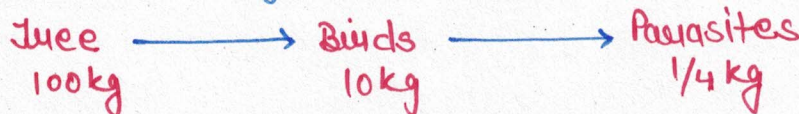 Tree → Birds → Parasites
100kg 10kg 1/4 kg